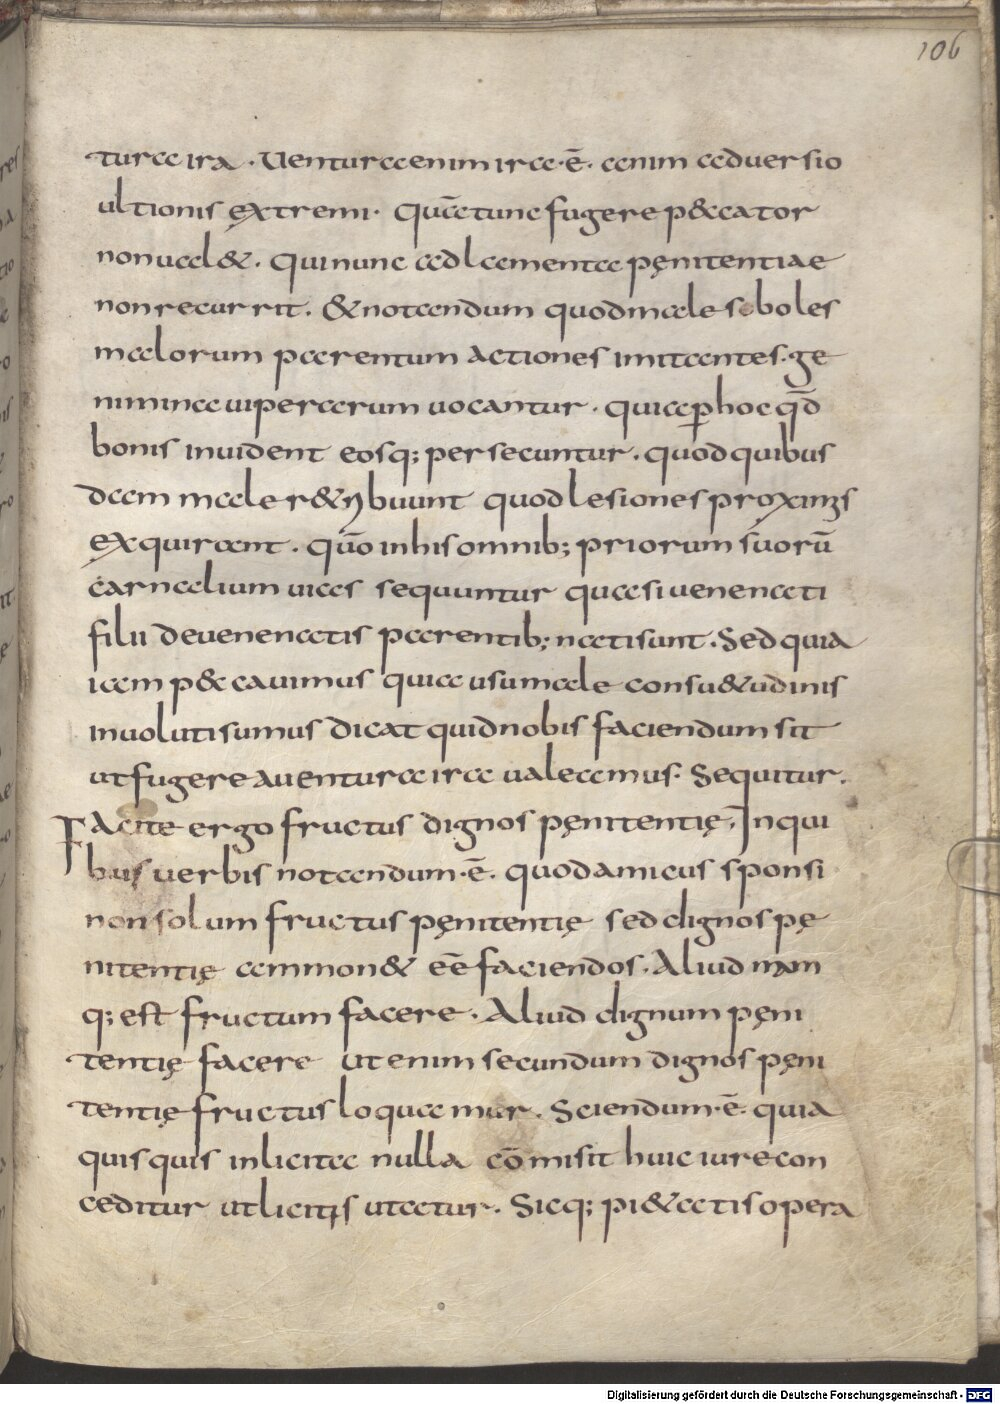 106
tura ira · Uentura enim ira · ē · anim aduersio
ultionis extremi · Quā tunc fugere p&cator
non ual& · Qui nunc ad lamenta pęnitentiae
non recurrit · & notandum quod male soboles
malorum parentum actiones imitantes · ge
nimina uiperarum uocantur · quia ꝑ hoc qd̄
bonis inuident eosq; persecuntur · quod quibus
dam male r&ribuunt quod lesiones proximis
exquirant · quō in his omnib; priorum suorū
carnalium uias sequuntur quasi uenenati
filii de uenenatis parentib; nati sunt · Sed quia
iam p&cauimus quia usu male consu&udinis
inuoluti sumus dicat quid nobis faciendum sit
ut fugere a uentura ira ualeamus · Sequitur ·
Facite ergo fructus dignos pęnitentię · In qui
bus uerbis notandum · ē · quod amicus sponsi
non solum fructus pęnitentię sed dignos pę
nitentię ammon& eē faciendos · Aliud nam
q; est fructum facere · Aliud dignum pęni
tentię facere ut enim secundum dignos pęni
tentię fructus loquamur · Sciendum · ē · quia
quisquis inlicita nulla cōmisit huic iure con
ceditur ut licitis utatur · Sicq; pi&atis opera
Digitalisierung gefördert durch die Deutsche Forschungsgemeinschaft - DFG